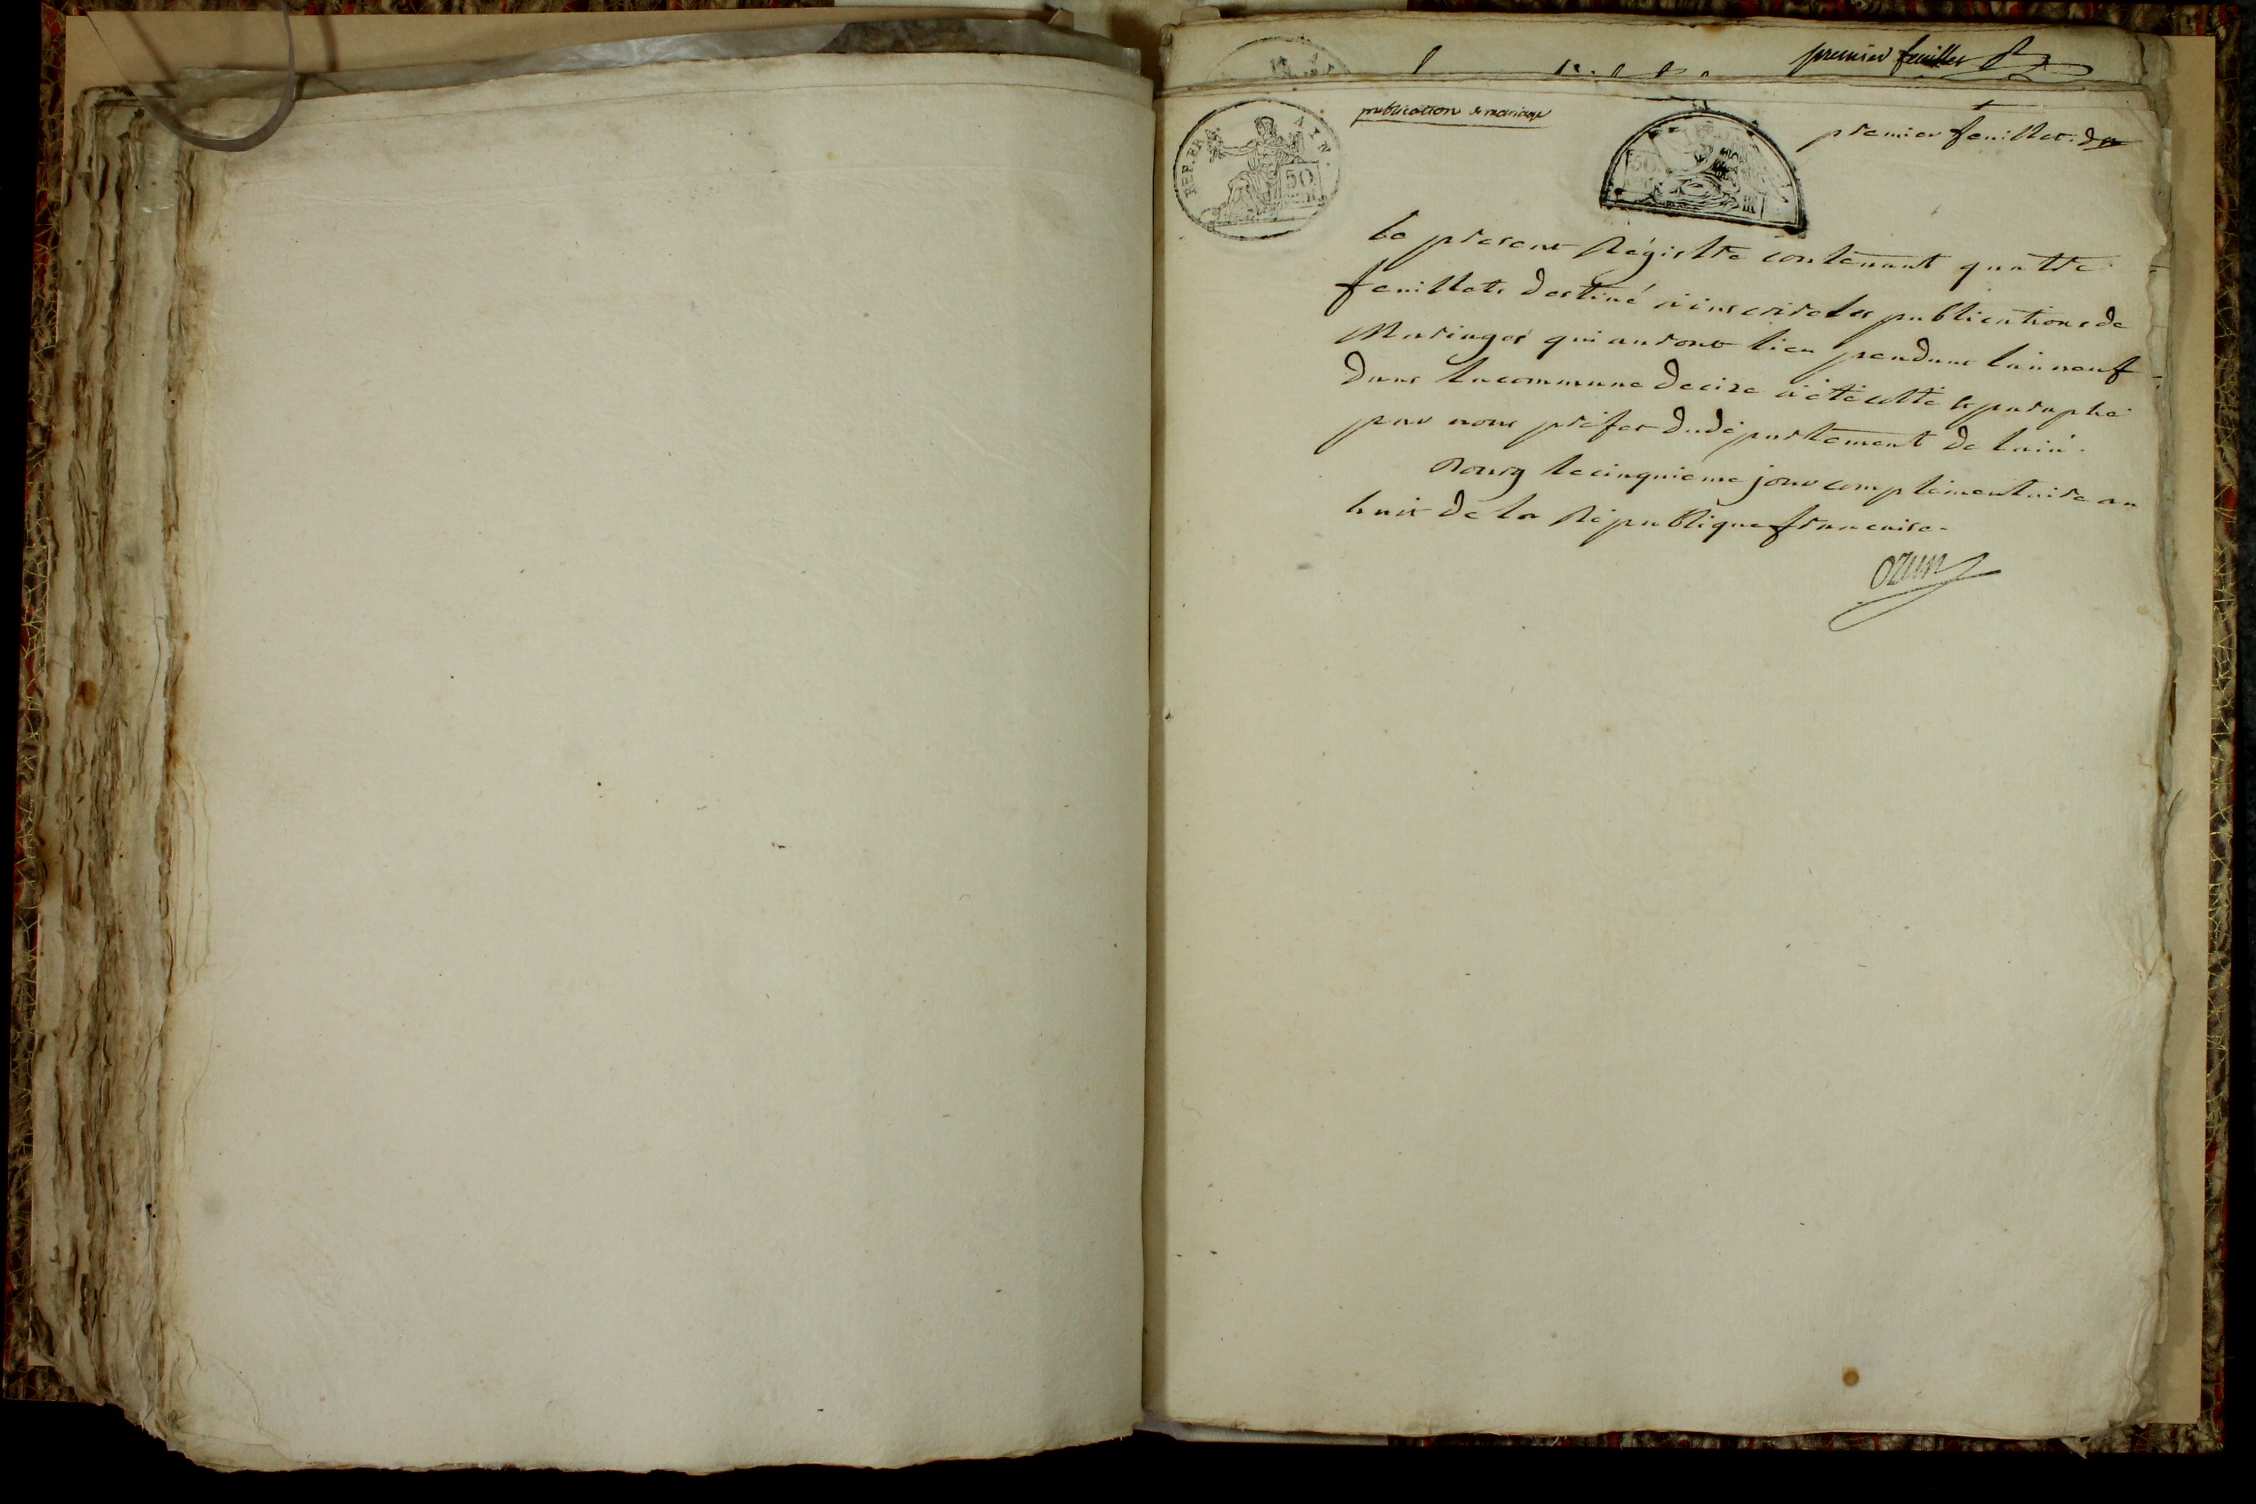 premier feuillet
publication de mariage
premier feuillet
REP. FRA.
AIN.
50
50
Le present Régistre contenant quatre
feuillets destiné à inscrire les publications de
Mariages qui auront lieu pendant lan neuf
dans la commune de cize à été cotté & paraphé
par nous préfet du département de lain.
Bourg le cinquieme jour complémentaire an
huit de la République francaise.
Ozun